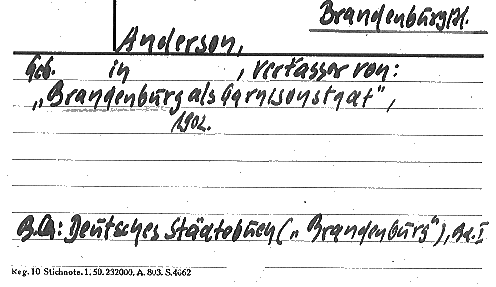 Brandenburg/H.
Anderson,
Geb. in , Verfasser von:
„Brandenburg als Garnisonstadt",
1902.
B.Qu: Deutsches Städtebuch („Brandenburg"), Bd. I
Reg. 10 Stichnote. 1. 50. 232000. A. 803. S. 4662